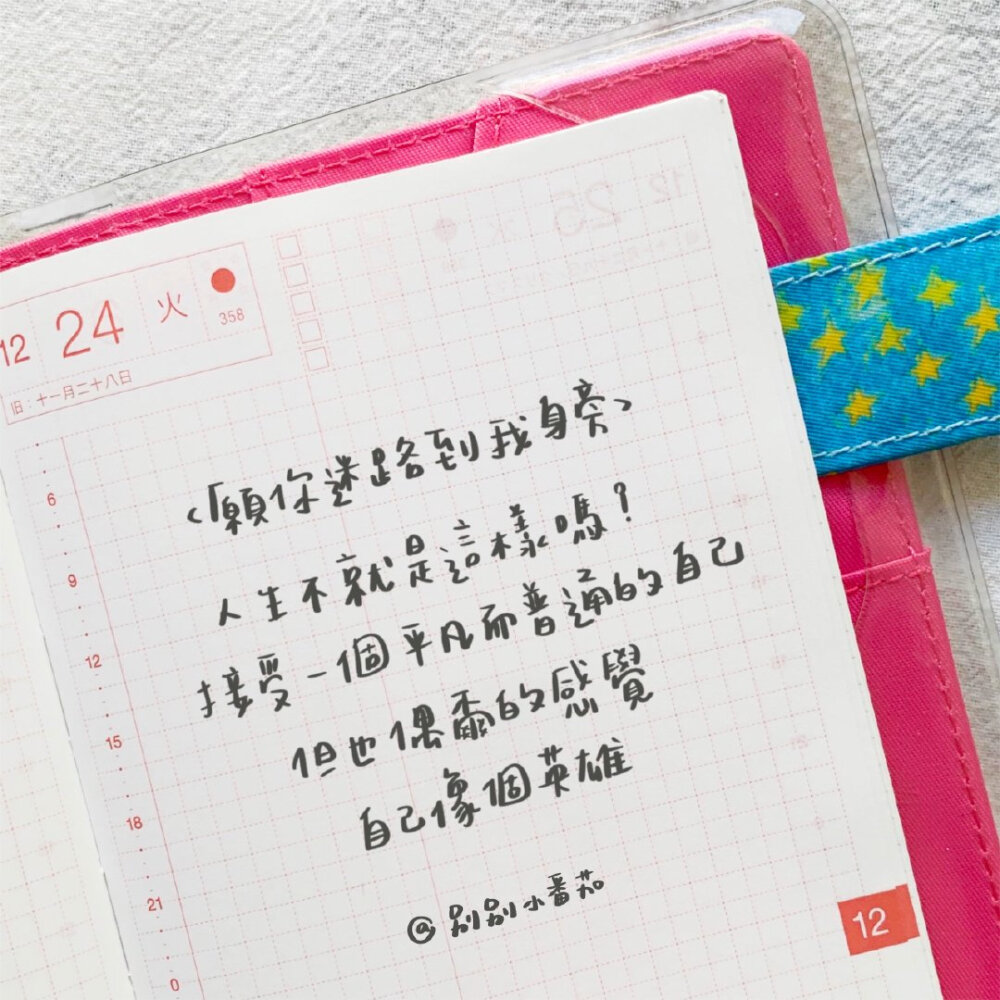 12 24 火 358
旧：十一月二十八日
〈願你迷路到我身旁〉
人生不就是這樣嗎？
接受一個平凡而普通的自己
但也偶爾的感覺
自己像個英雄
@別別小番茄
6
9
12
15
18
21
0
12